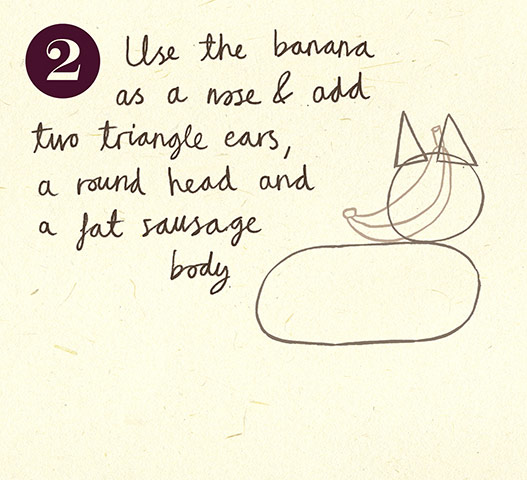 2
Use the banana
as a nose & add
two triangle ears,
a round head and
a fat sausage
body